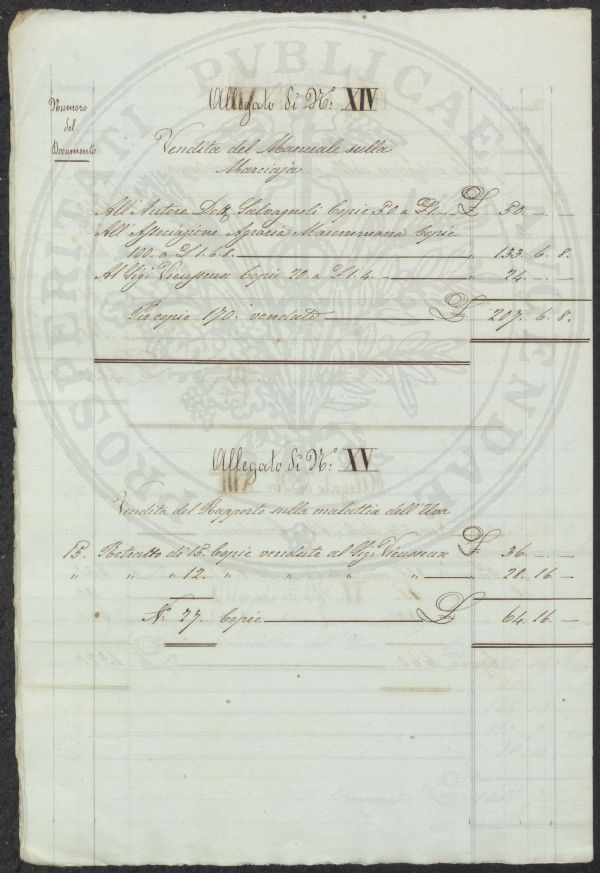 PROSPERITATI PVBLICAE AVGENDAE
Allegato di N.º XIV
Numero
del
Documento
Vendita del Manuale sulla
Marciaja
All' Autore Dott. Salvagnoli Copie 50 a £1 — £ 50. — —
All' Associazione Agraria Maremmana Copie
100 a £1.6.8. — " 133. 6. 8.
Al Sig. Vieusseux Copie 20 a £1.4. — " 24. — —
Per copie 170. vendute — £ 207. 6. 8.
Allegato di N.º XV
Vendita del Rapporto sulla malattia dell' Uva
15. Retratto di 15. Copie vendute al Sig. Vieusseux £ 36. — —
" " " 12. " " " " — " 28. 16. —
N.º 27. Copie — £ 64. 16. —